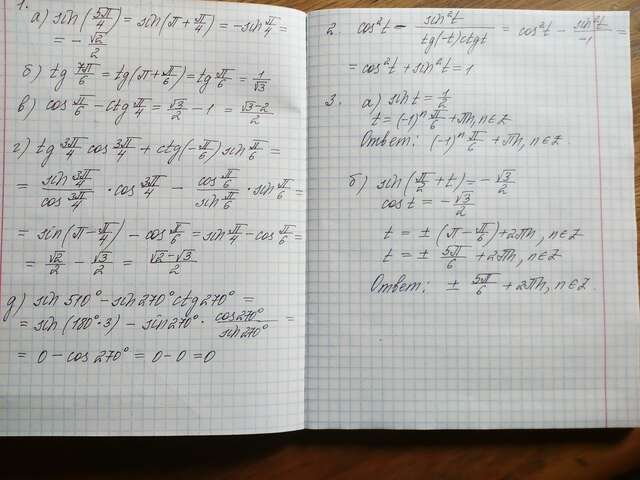 1.
а) sin(5π/4) = sin(π + π/4) = -sin π/4 =
= - √2/2
б) tg 7π/6 = tg(π + π/6) = tg π/6 = 1/√3
в) cos π/6 - ctg π/4 = √3/2 - 1 = √3-2/2
г) tg 3π/4 cos 3π/4 + ctg(-π/6) sin π/6 =
= sin 3π/4 / cos 3π/4 · cos 3π/4 - cos π/6 / sin π/6 · sin π/6 =
= sin(π - π/4) - cos π/6 = sin π/4 - cos π/6 =
= √2/2 - √3/2 = √2-√3/2
д) sin 510° - sin 270° ctg 270° =
= sin(180°·3) - sin 270° · cos 270° / sin 270° =
= 0 - cos 270° = 0 - 0 = 0
2. cos²t - sin²t / tg(-t) ctgt = cos²t - sin²t / -1 =
= cos²t + sin²t = 1
3. а) sin t = 1/2
t = (-1)ⁿ π/6 + πn, n ∈ Z
Ответ: (-1)ⁿ π/6 + πn, n ∈ Z
б) sin(π/2 + t) = - √3/2
cos t = - √3/2
t = ± (π - π/6) + 2πn, n ∈ Z
t = ± 5π/6 + 2πn, n ∈ Z
Ответ: ± 5π/6 + 2πn, n ∈ Z.